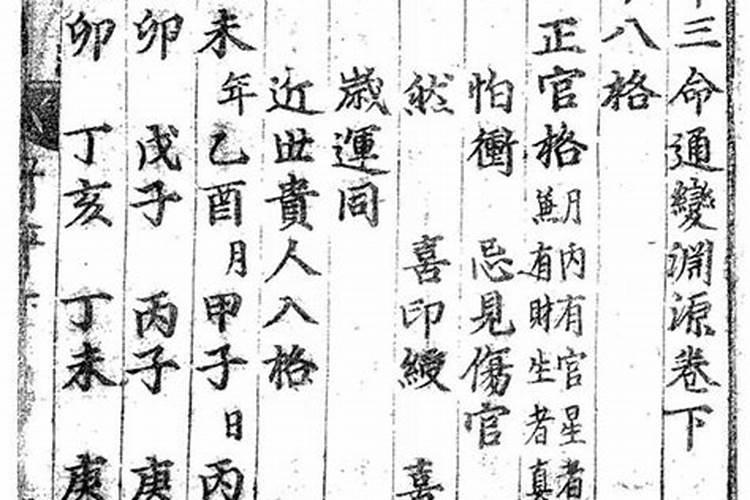 三命通變淵源卷下
八格
正官格月内有官星者兼有財生者真
怕衝 忌見傷官
然 喜印綬 喜
歳運同
近世貴人入格
未年乙酉月甲子日丙
卯 戊子 丙子 庚
卯 丁亥 丁未 庚